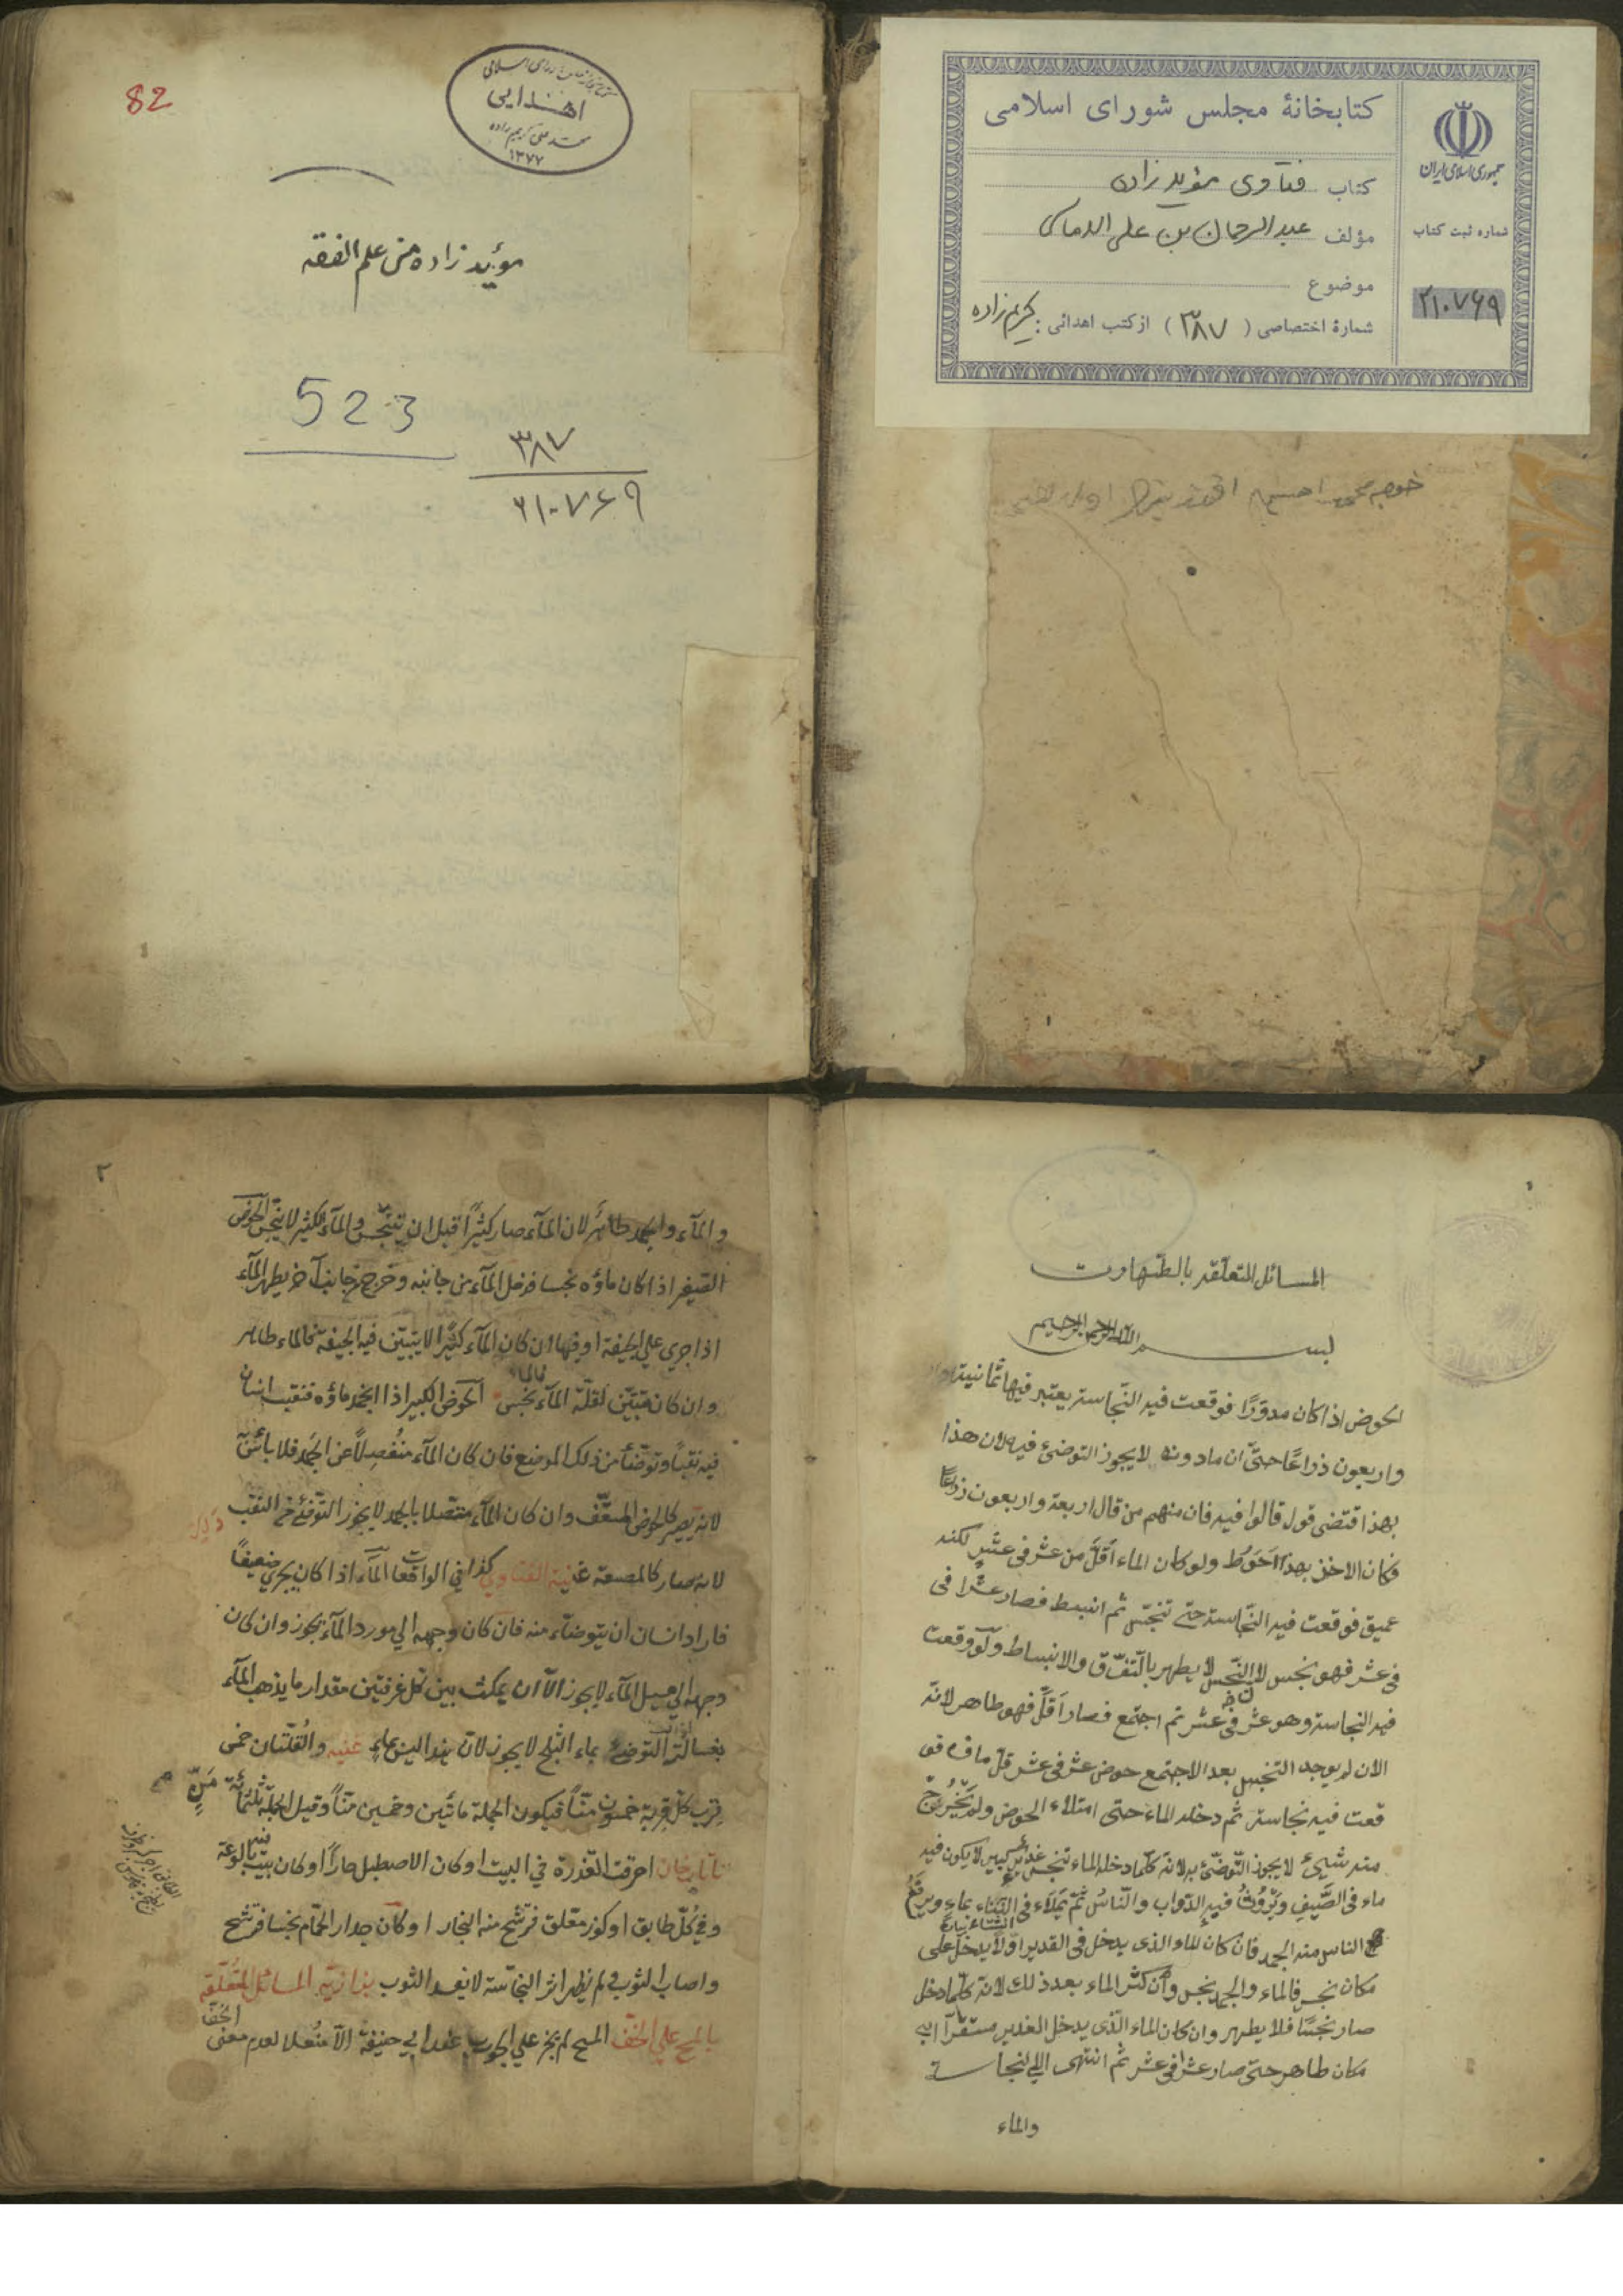 كتابخانهٔ مجلس شورای اسلامی
جمهوری اسلامی ایران
كتاب فتاوی مؤید زاده
مؤلف عبدالرحمان بن علی الاماسی
موضوع
شمارهٔ اختصاصی ( ۳۸۷ ) از كتب اهدائی : كریم زاده
شماره ثبت كتاب
۲۱۰۷۶۹
82
اهدایی
محمد علی كریم زاده
۱۳۷۷
مؤید زاده من علم الفقه
523
۳۸۷
۲۱۰۷۶۹
۱
المسائل المتعلقه بالطهارت
بسم الله الرحمن الرحیم
الحوض اذا كان مدوّرًا فوقعت فیه النّجاسة یعتبر فیها ثمانیة
واربعون ذراعًا حتّى ان مادونه لا یجوز التوضئ فیه لان هذا
بهذا قتضى قول قالوا فیه فان منهم من قال اربعة واربعون ذراعًا
فكان الاخذ بهذا احَوطُ ولو كان الماء اقلَّ من عشر فى عشر لكنه
عمیق فوقعت فیه النّجاسة حتى تنجّس ثم انبسط فصار عشرا فى
فى عشر فهو نجس لان النّجس لا یطهر بالتّفرّق والانبساط ولو وقعت
فیه النجاسة وهو عشر فى عشر ثم اجتمع فصار اقلّ فهو طاهر لانّه
الان لم یوجد التنجس بعد الاجتمع حوض عشر فى عشر قلّ ماؤه فو
قعت فیه نجاسة ثم دخله الماء حتى امتلاء الحوض ولم یَخْرُجْ
منه شیئ لا یجوز التّوضّئ به لانّه كلّما دخله الماء تنجس غدیر كبیر لا یكون فیه
ماء فى الصَّیفِ ویَرُوثُ فیه الدّواب والنّاسُ ثمّ یَمْلَاء فى الشتاء ماء ویرفَعُ
الناس منه الجمد فان كان الماء الذى یدخل فى الغدیر اوّلًا یدخل على
مكان نجس فالماء والجمد نجس وان كثر الماء بعد ذلك لانّه كلّما دخل
صار نجسًا فلا یطهر وان كان الماء الّذى یدخل الغدیر مستقرّا فى
مكان طاهر حتى صار عشرا فى عشر ثم انتهى الى النجاسة
والماء
۲
والمآء والجمد طاهر لان المآء صار كثیرًا قبل ان تنجّس والمآء الكثیر لا ینجس الحوض
الصغیر اذا كان ماؤه نجسا فدخل المآء من جانبه وخرج من جانب آخر یطهر المآء
اذا جرى على الجیفة او فیها ان كان المآء كثیرًا لا یتبیّن فیه الجیفة فالماء طاهر
وان كان تتبیّن لقلّة المآء فالماء نجس الحوض الكبیر اذا انجمد ماؤه فنقب انسان
فیه نقبًا وتوضّأ من ذلك الموضع فان كان المآء منفصلًا عن الجمد فلا بأس
لانه یصیر كالحوض المسقّف وان كان المآء متصلا بالجمد لا یجوز التوضئ من النقب
لانه صار كالمصعة غنیة الفتاوى كذا فى الواقعات المآء اذا كان یجرى ضعیفًا
فاراد انسان ان یتوضاء منه فان كان وجهه الى مورد المآء یجوز وان كان
وجهه الى مسیل المآء لا یجوز الّا ان یمكث بین كل غرفتین مقدار ما یذهب المآء
بغسالته التوضئ بماء الثلج لا یجوز لان هذا لیس بماء غنیه والقلّتان خمس
قِرب كل قربة خمسون منّا فیكون الجملة مائتین وخمسین منّاً وقیل الجملة ثلثمائة مَنٍّ
تاتارخان احرقت العذرة فى البیت او كان الاصطبل حارًا او كان بیت بالوعة
وفى كلّ طابق او كوز معلّق فترشّح منه البخار او كان جدار الحمّام نجسا فترشّح
واصاب الثوب فى لم یظهر اثر النجاسة لا یفسد الثوب بزازیه المسائل المتعلّقه
بالمسح على الخفّ المسح لم یجز على الجورب عند ابى حنیفة الّا منعلا لعدم معنى
الخفّ